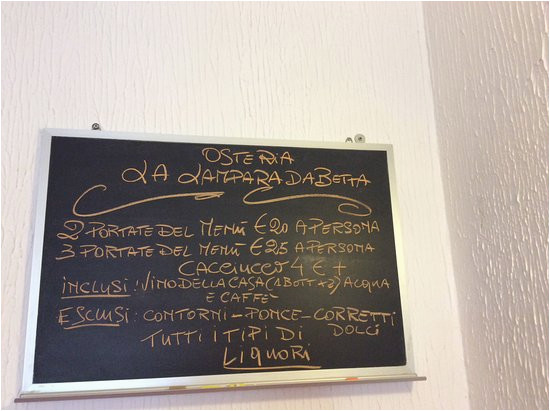 OSTERIA
LA LAMPARA DA BETTA
2 PORTATE DEL MENÙ €20 A PERSONA
3 PORTATE DEL MENÙ €25 A PERSONA
CACCIUCCO 4 € +
INCLUSI: VINO DELLA CASA (1 BOTT ) ACQUA
E CAFFE'
ESCLUSI: CONTORNI - PONCE - CORRETTI
DOLCI
TUTTI I TIPI DI
LIQUORI